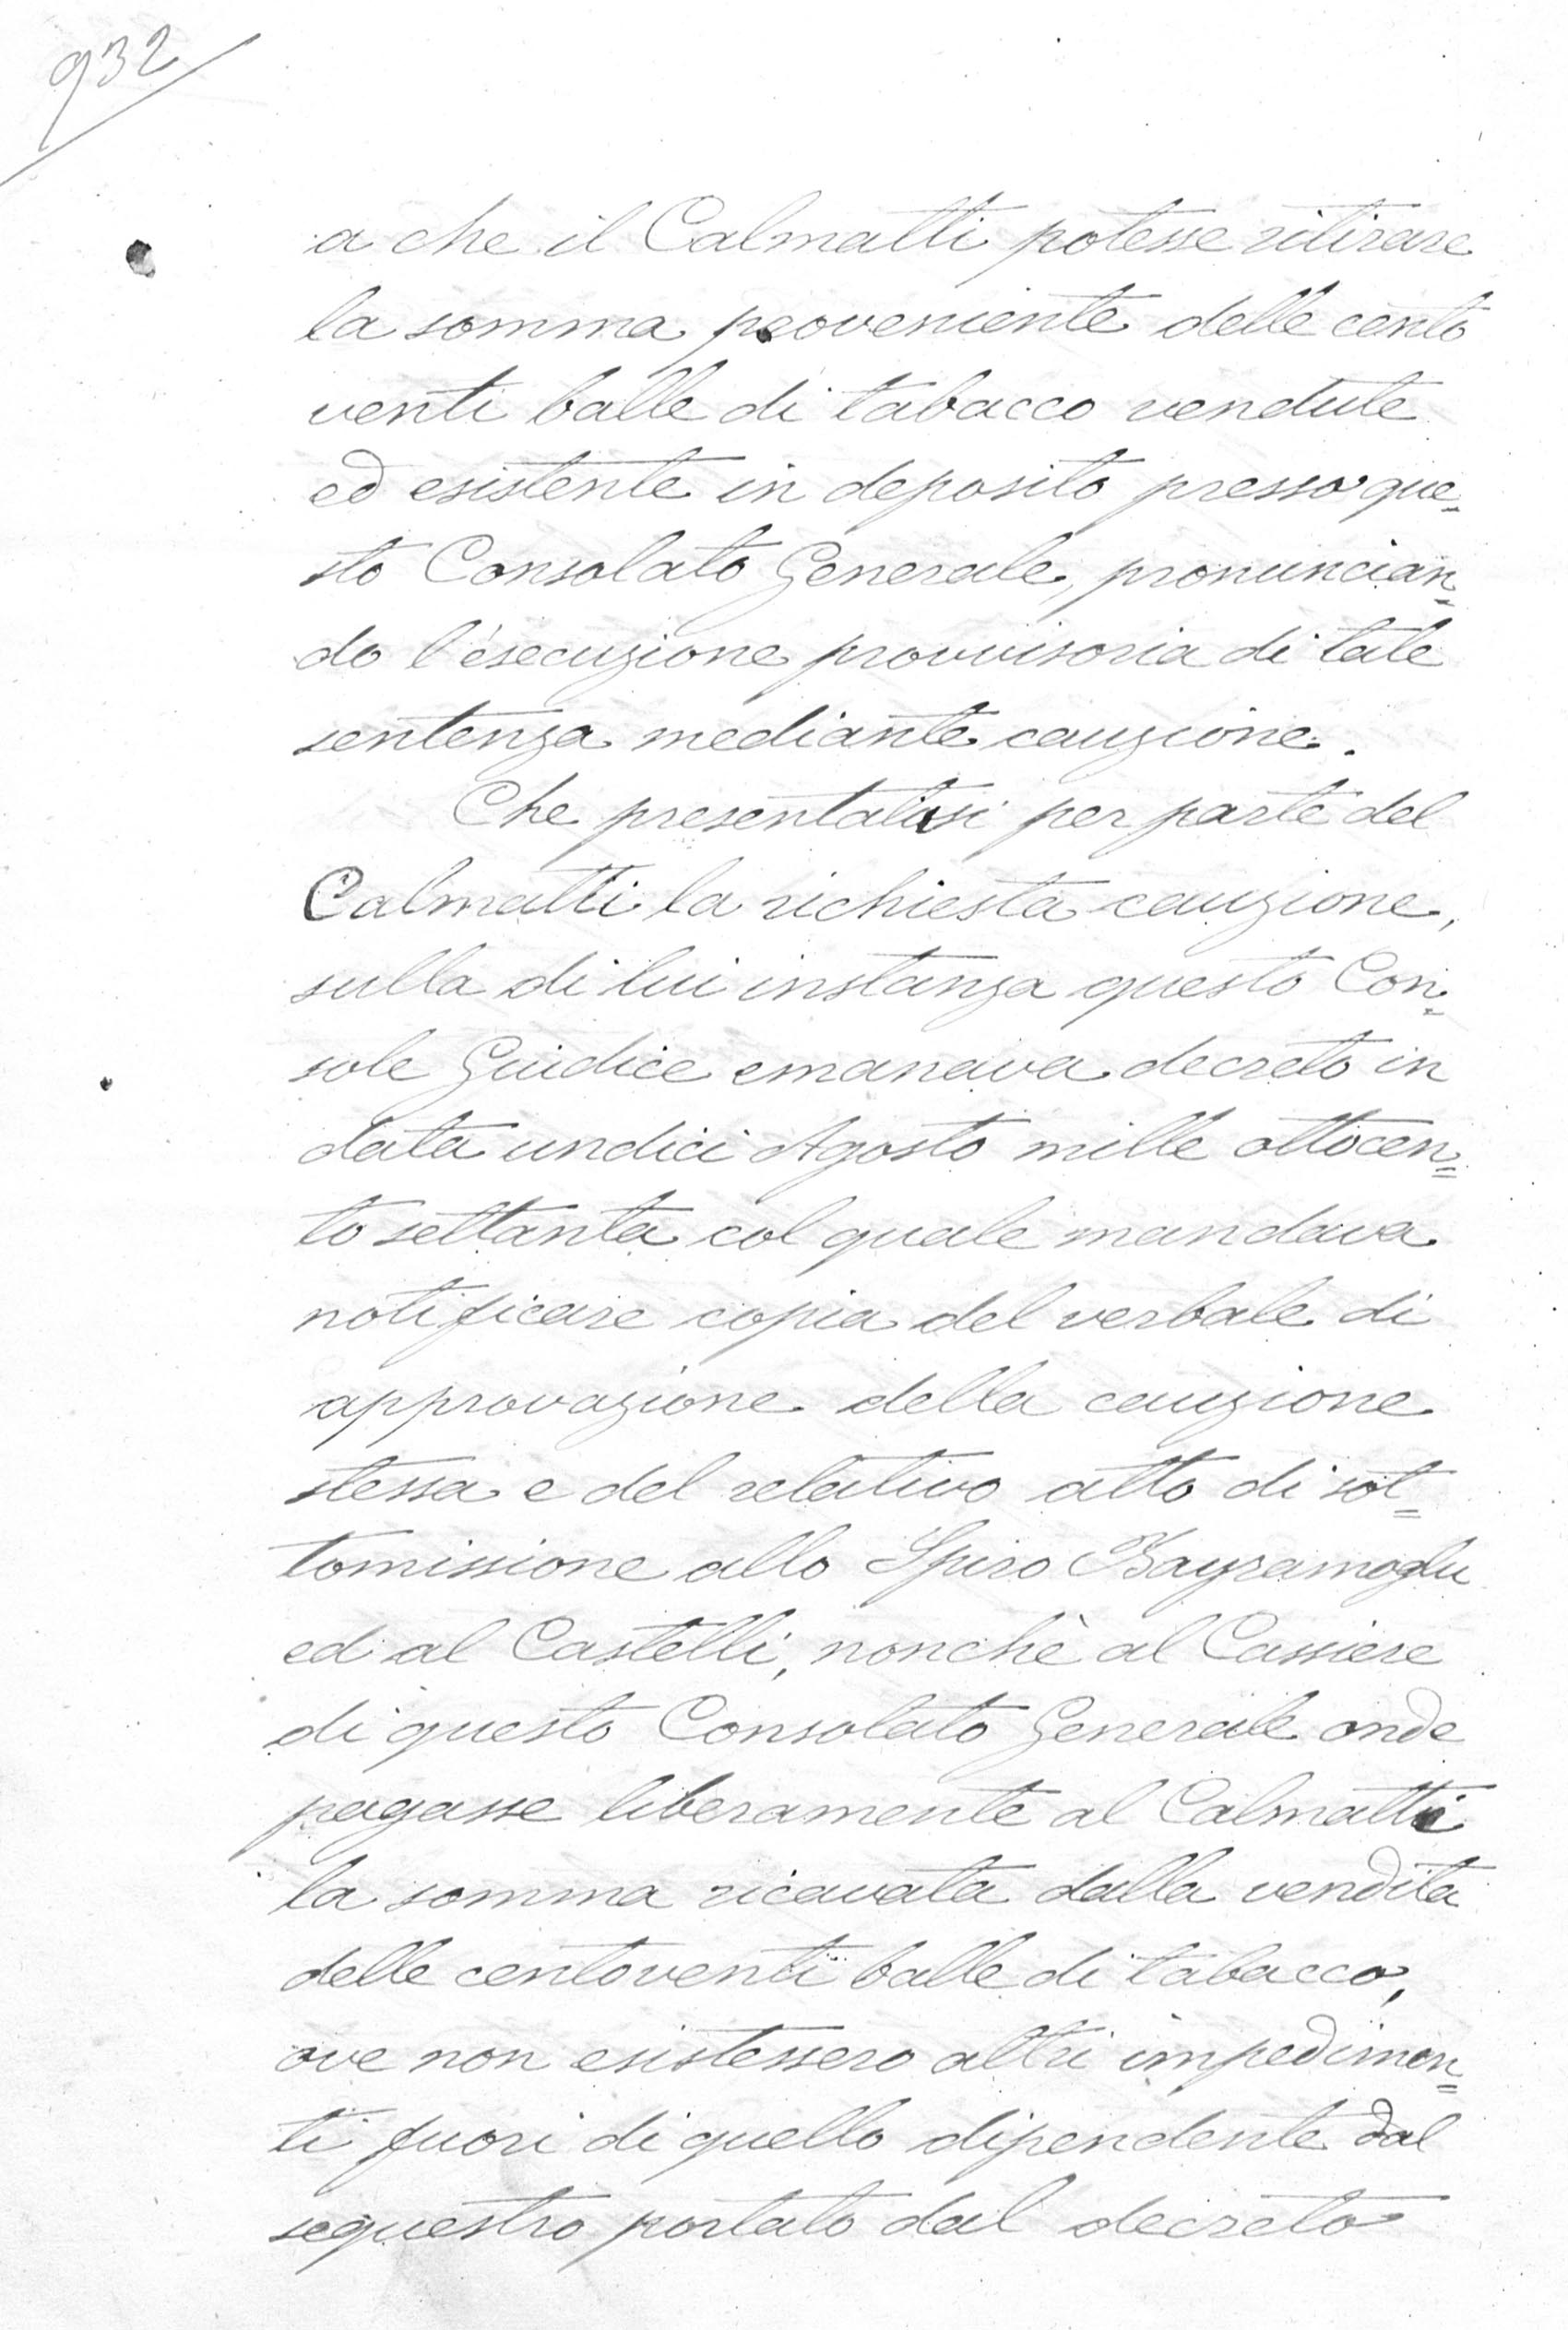 932
a che il Calmatti potesse ritirare
la somma proveniente delle cento
venti balle di tabacco vendute
ed esistente in deposito presso que=
sto Consolato Generale, pronuncian=
do l'esecuzione provvisoria di tale
sentenza mediante cauzione.
Che presentatasi per parte del
Calmatti la richiesta cauzione,
sulla di lui instanza questo Con=
sole Giudice emanava decreto in
data undici Agosto mille ottocen=
to settanta col quale mandava
notificare copia del verbale di
approvazione della cauzione
stessa e del relativo atto di sot=
tomissione allo Spiro Bayramoglu
ed al Castelli, nonchè al Cassiere
di questo Consolato Generale onde
pagasse liberamente al Calmatti
la somma ricavata dalla vendita
delle centoventi balle di tabacco,
ove non esistessero altri impedimen=
ti fuori di quello dipendente dal
sequestro portato dal decreto